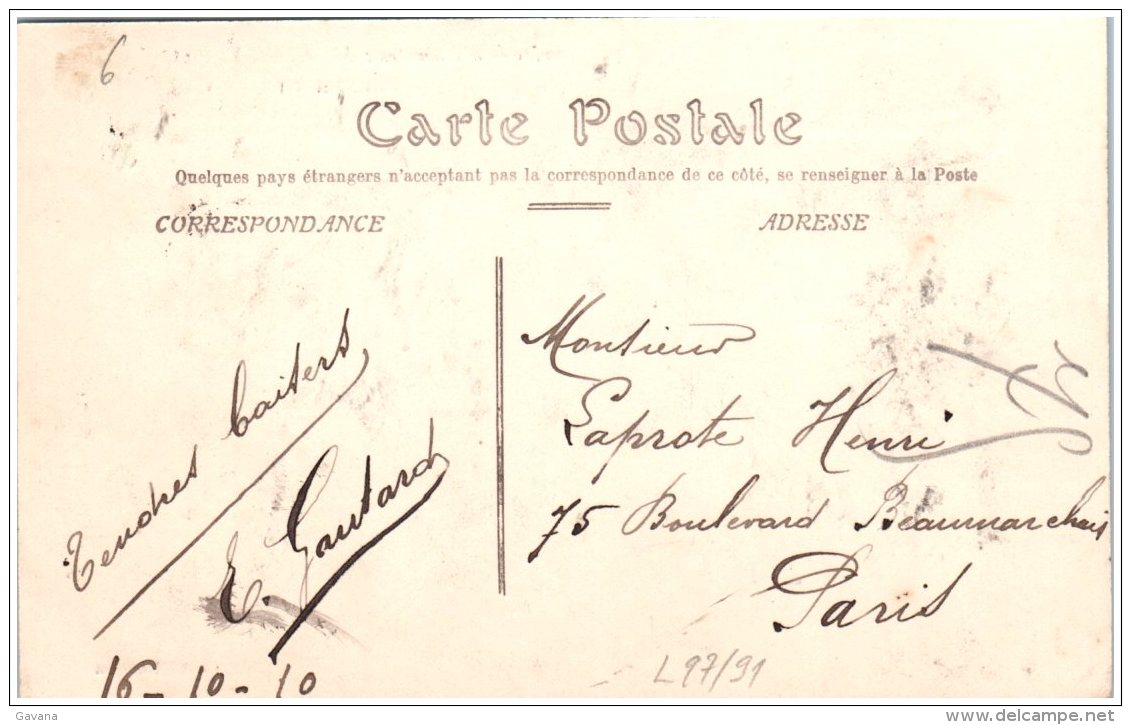 6
Carte Postale
Quelques pays étrangers n'acceptant pas la correspondance de ce côté, se renseigner à la Poste
CORRESPONDANCE
Tendres baisers
E. Goutard
16-10-10
ADRESSE
Monsieur
Laprote Henri
75 Boulevard Beaumarchais
Paris
L97/91
Gavana
delcampe.net